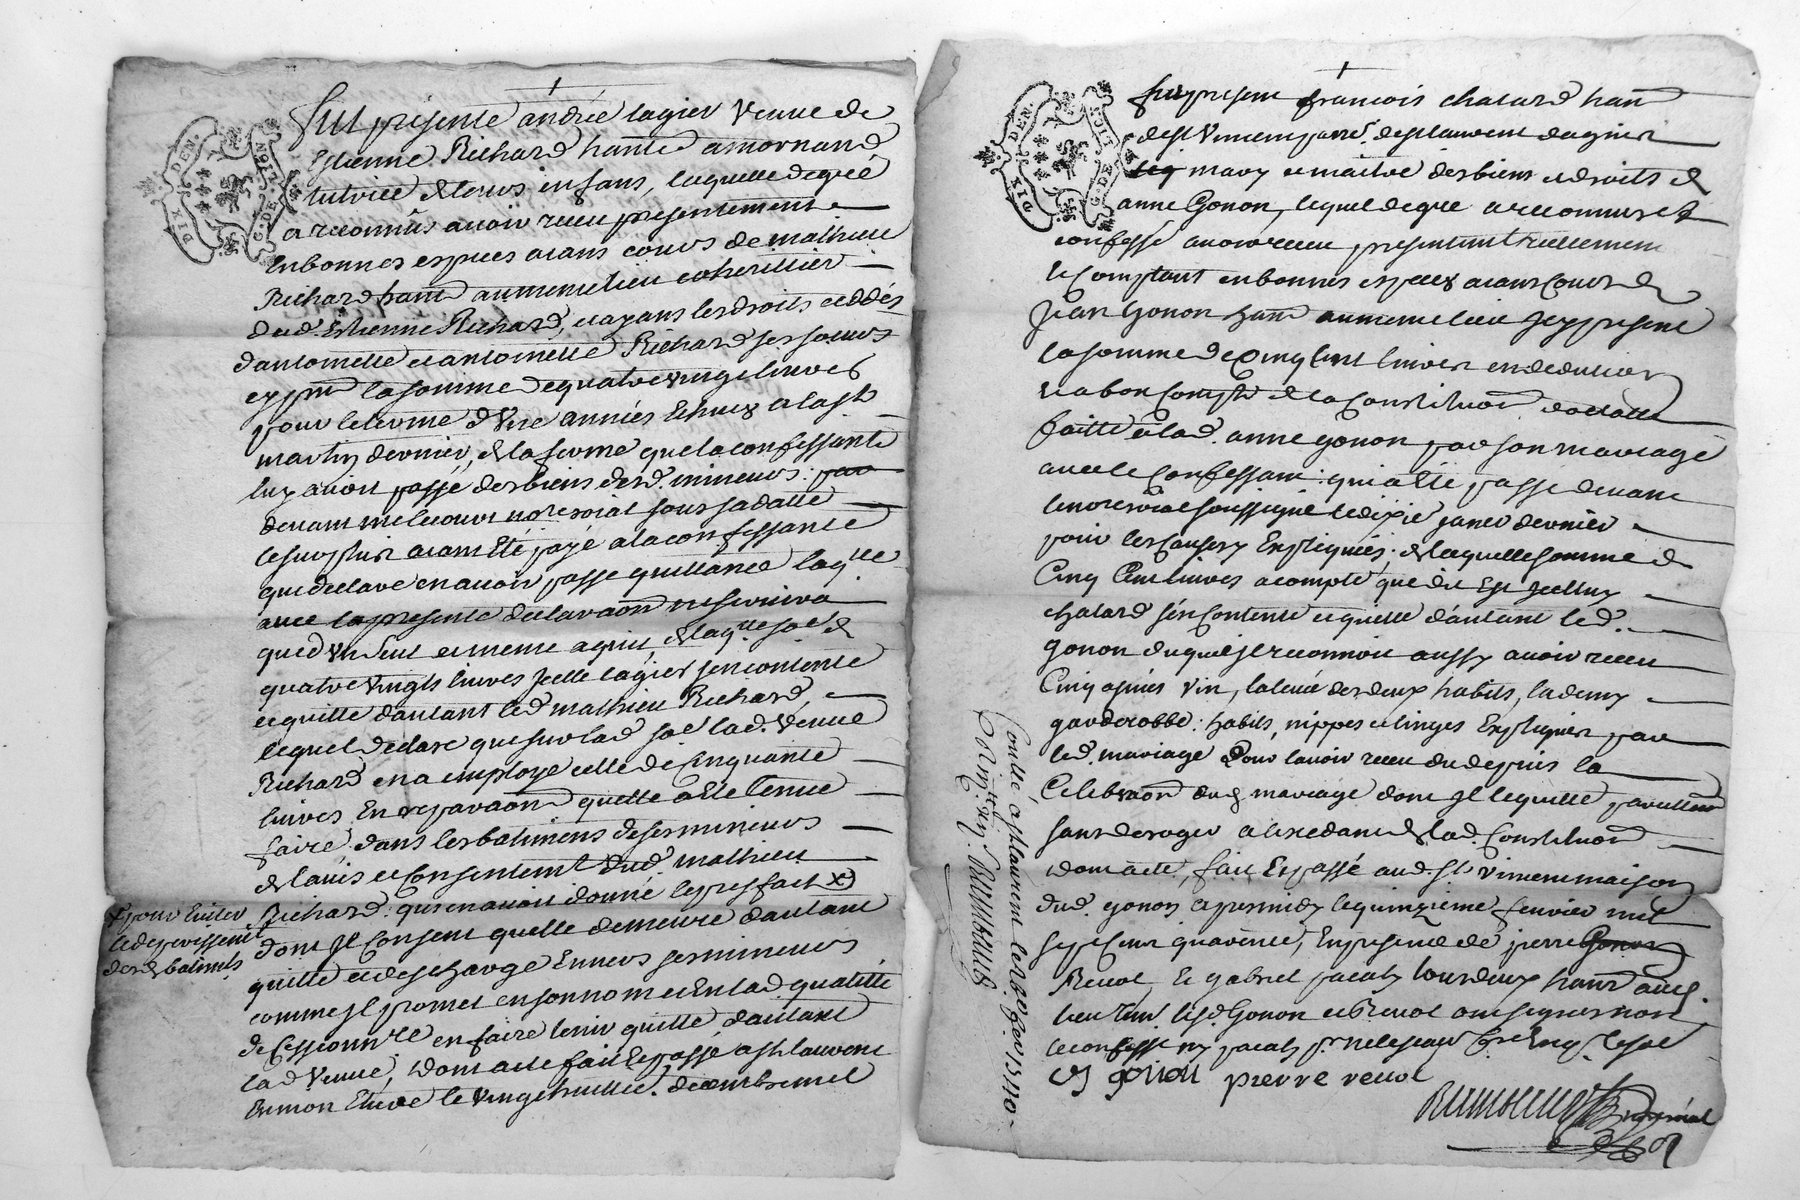 DIX DEN.
G. DE LION
fut présente andrée lagier veuve de
Estienne Richard hantt a mornand
tutrice de leurs enfans, laquelle de gré
a reconnûs avoir receu presentement
en bonnes especes aians cours de mathieu
Richard hantt au meme lieu coheritier
dud. Estienne Richard, et ayant les droits ceddés
dantoinette et antoinette Richard ses sœurs
cy pnt la somme de quatre vingt livres
pour le terme d'une année Echeue a la st
martin dernier, de la ferme que la confessante
luy avoit passé des biens desd. mineurs par
devant me notre roial sous sa datte
le surplus aiant Eté payé a la confessante
que declare en avoir passé quittance laqlle
avec la presente declaraon ne servira
que d'un seul et meme aquit, de laqlle soe de
quatre vingts livres jcelle lagier sen contente
et quitte dautant led mathieu Richard,
lequel declare que sur lad soe lad. veuve
Richard en a employe celle de cinquante
livres En reparaon quelle a Eté tenue
faire dans les batimens de ses mineurs
de lavis et consentemt dud. mathieu
Richard: qui en avoit donné le prisfait X
dont jl consent quelle demeure dautant
quitte et deschargé Envers ses mineurs
comme jl promet en son nom et En lad qualitté
de Cessionnre en faire tenir quitte dautant
lad veuve, dont acte fait et passé a st laurent
En mon Etude le vingt huitie. decembre mil
X pour Eviter
le deperissemt
desd. batimts
DIX DEN.
G. DE LION
fut present francois chatard hantt
de st vincent parre. de st laurent dagnier
mary et maitre des biens et droits de
anne Gonon, lequel de gre a reconnu et
confessé avoir receu presentement reellement
et Comptant en bonnes especes aians cours de
jean gonon hantt au meme lieu jcy present
la somme de cinq cent livres en deduction
et a bon compte de la Constituon dottalle
faitte a lad. anne gonon par son mariage
avec le Confessant: qui a Eté passé devant
le notre roial soussigné le dixie janer dernier
pour les causes y Expliquées, de laquelle somme de
Cinq Cent livres a compte que dit Est jcelluy
chatard s'en Contente et quitte d'autant led.
gonon duquel jl reconnoit aussy avoir receu
Cinq anées vin, la levé des deux habits, la demy
garderobbe: habits, nippes et linges Expliqués par
led. mariage pour l'avoir receu du depuis la
Celebraon dud mariage dont jl le quitte pareillemt
sans deroger a lexedant de lad. Constituon
dont acte, fait Et passé aud. st vincent maison
dud. gonon apres midy le quinzieme fevrier mil
sept cent quarente, En presence de pierre
Revol, et gabriel pacaly hantt aud.
lieu tem. lesd. Gonon et Revol ont signé non
le confesst ny pacaly pr ne le scavoir
gonon pierre revol
Controllé a st laurent le 26 fer 1740